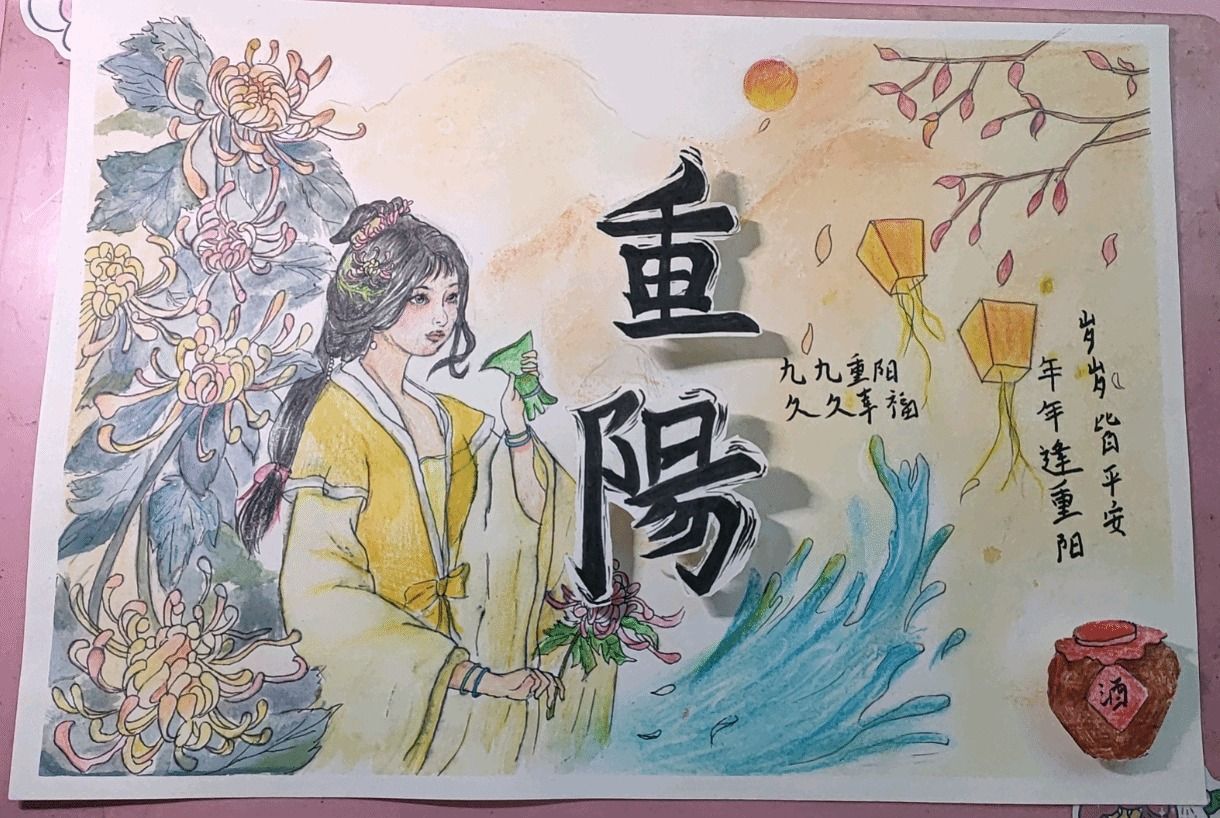 重陽
九九重阳
久久幸福
岁岁皆平安
年年逢重阳
酒